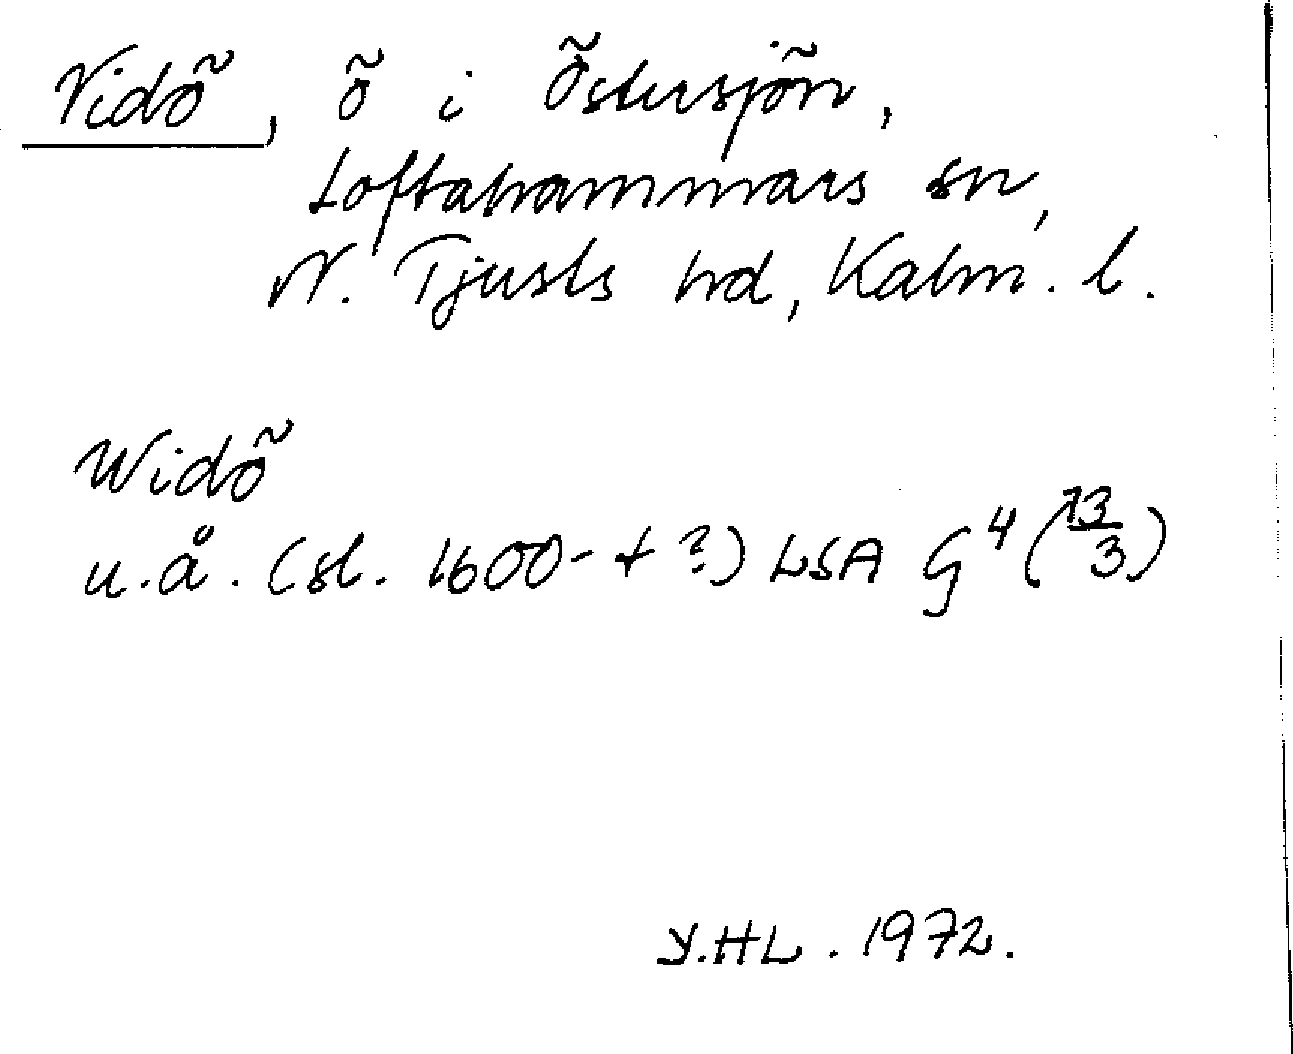 Vidö, ö i Östersjön,
Loftahammars sn,
N. Tjusts hd, Kalm. l.
Widö
u.å. (sl. 1600-t ?) LSA G⁴ (13/3)
Y.HL. 1972.